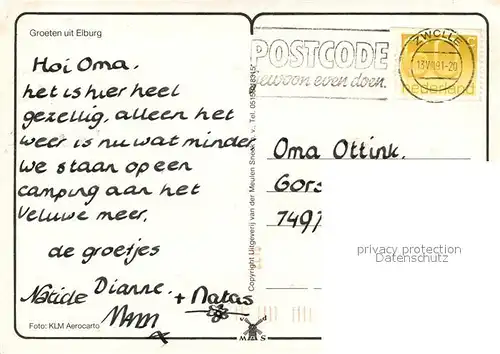 Groeten uit Elburg
Hoi Oma,
het is hier heel
gezellig, alleen het
weer is nu wat minder
We staan op een
camping aan het
Veluwe meer.
de groetjes
Dianne.
+ Natas
Foto: KLM Aerocarto
Copyright Uitgeverij van der Meulen Sneek b.v. Tel.
POSTCODE
gewoon even doen.
ZWOLLE
nederland
Oma Ottink.
Gors
7497
privacy protection
Datenschutz